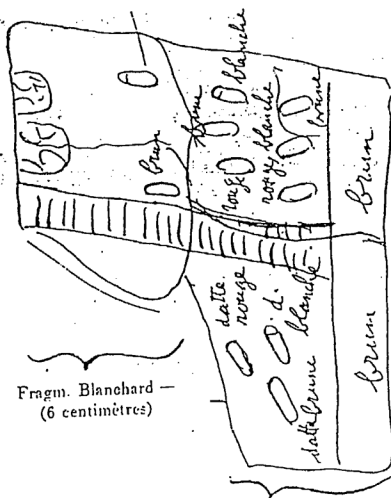 blanche
brune
brun
rouge
blanche
rouge
brune
brun
datte
rouge
d.
blanche
datte brune
brun
Fragm. Blanchard —
(6 centimètres)